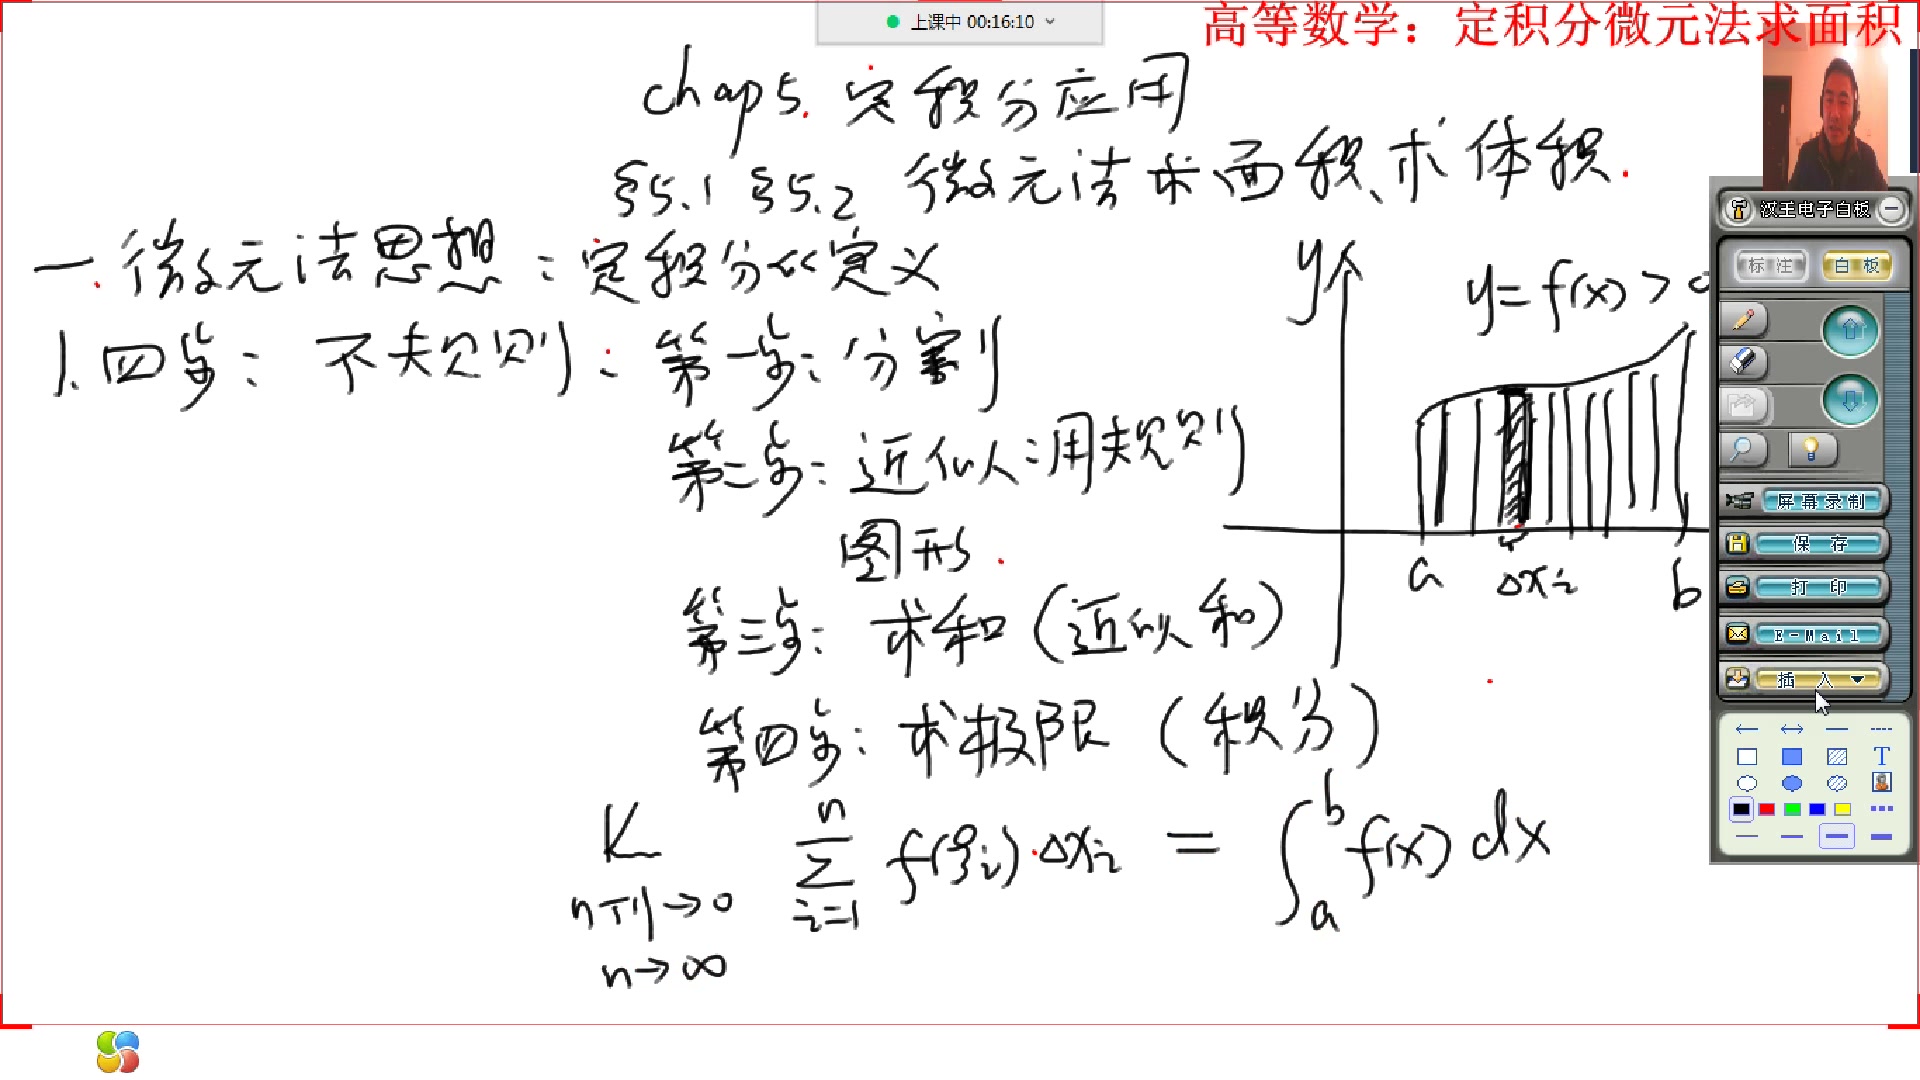 上课中 00:16:10
高等数学：定积分微元法求面积
chap5. 定积分应用
§5.1 §5.2 微元法求面积、求体积.
一.微元法思想：定积分的定义
1.四步：不规则：第一步：分割
第二步：近似：用规则
图形.
第三步：求和(近似和)
第四步：求极限(积分)
n
∑ f(ξi)·Δxi = ∫ b a f(x) dx
i=1
n→∞
y
y=f(x)>0
a Δxi b
汉王电子白板
标注 白板
屏幕录制
保存
打印
E-Mail
插入
T